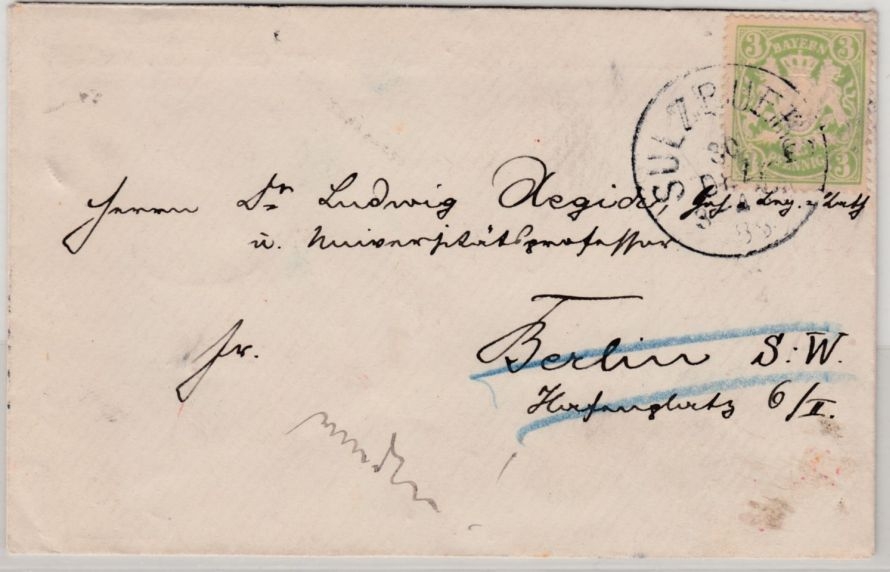 3 BAYERN 3
PFENNIG 3
SULZB
30
DEZ
88
Herrn Dr Ludwig Aegidi, Geh. Leg. Rath
u. Universitätsprofessor
fr.
Berlin S.W.
Hafenplatz 6/II.